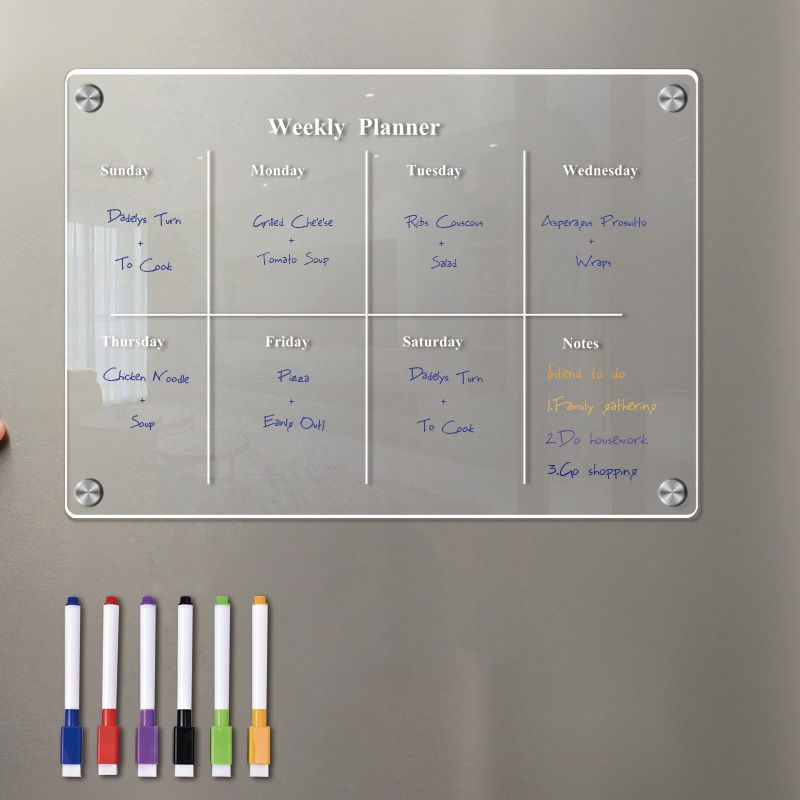 Weekly Planner
Sunday
Dadelys Turn
+
To Cook
Monday
Grilled Che'e'se
+
Tomato Soup
Tuesday
Ribs Couscous
+
Salad
Wednesday
Asperagus Prosuitto
+
Wraps
Thursday
Chicken Noodle
+
Soup
Friday
Pizza
+
Early Out!
Saturday
Dadelys Turn
+
To Cook
Notes
Intend to do
1.Family gathering
2.Do housework
3.Go shopping